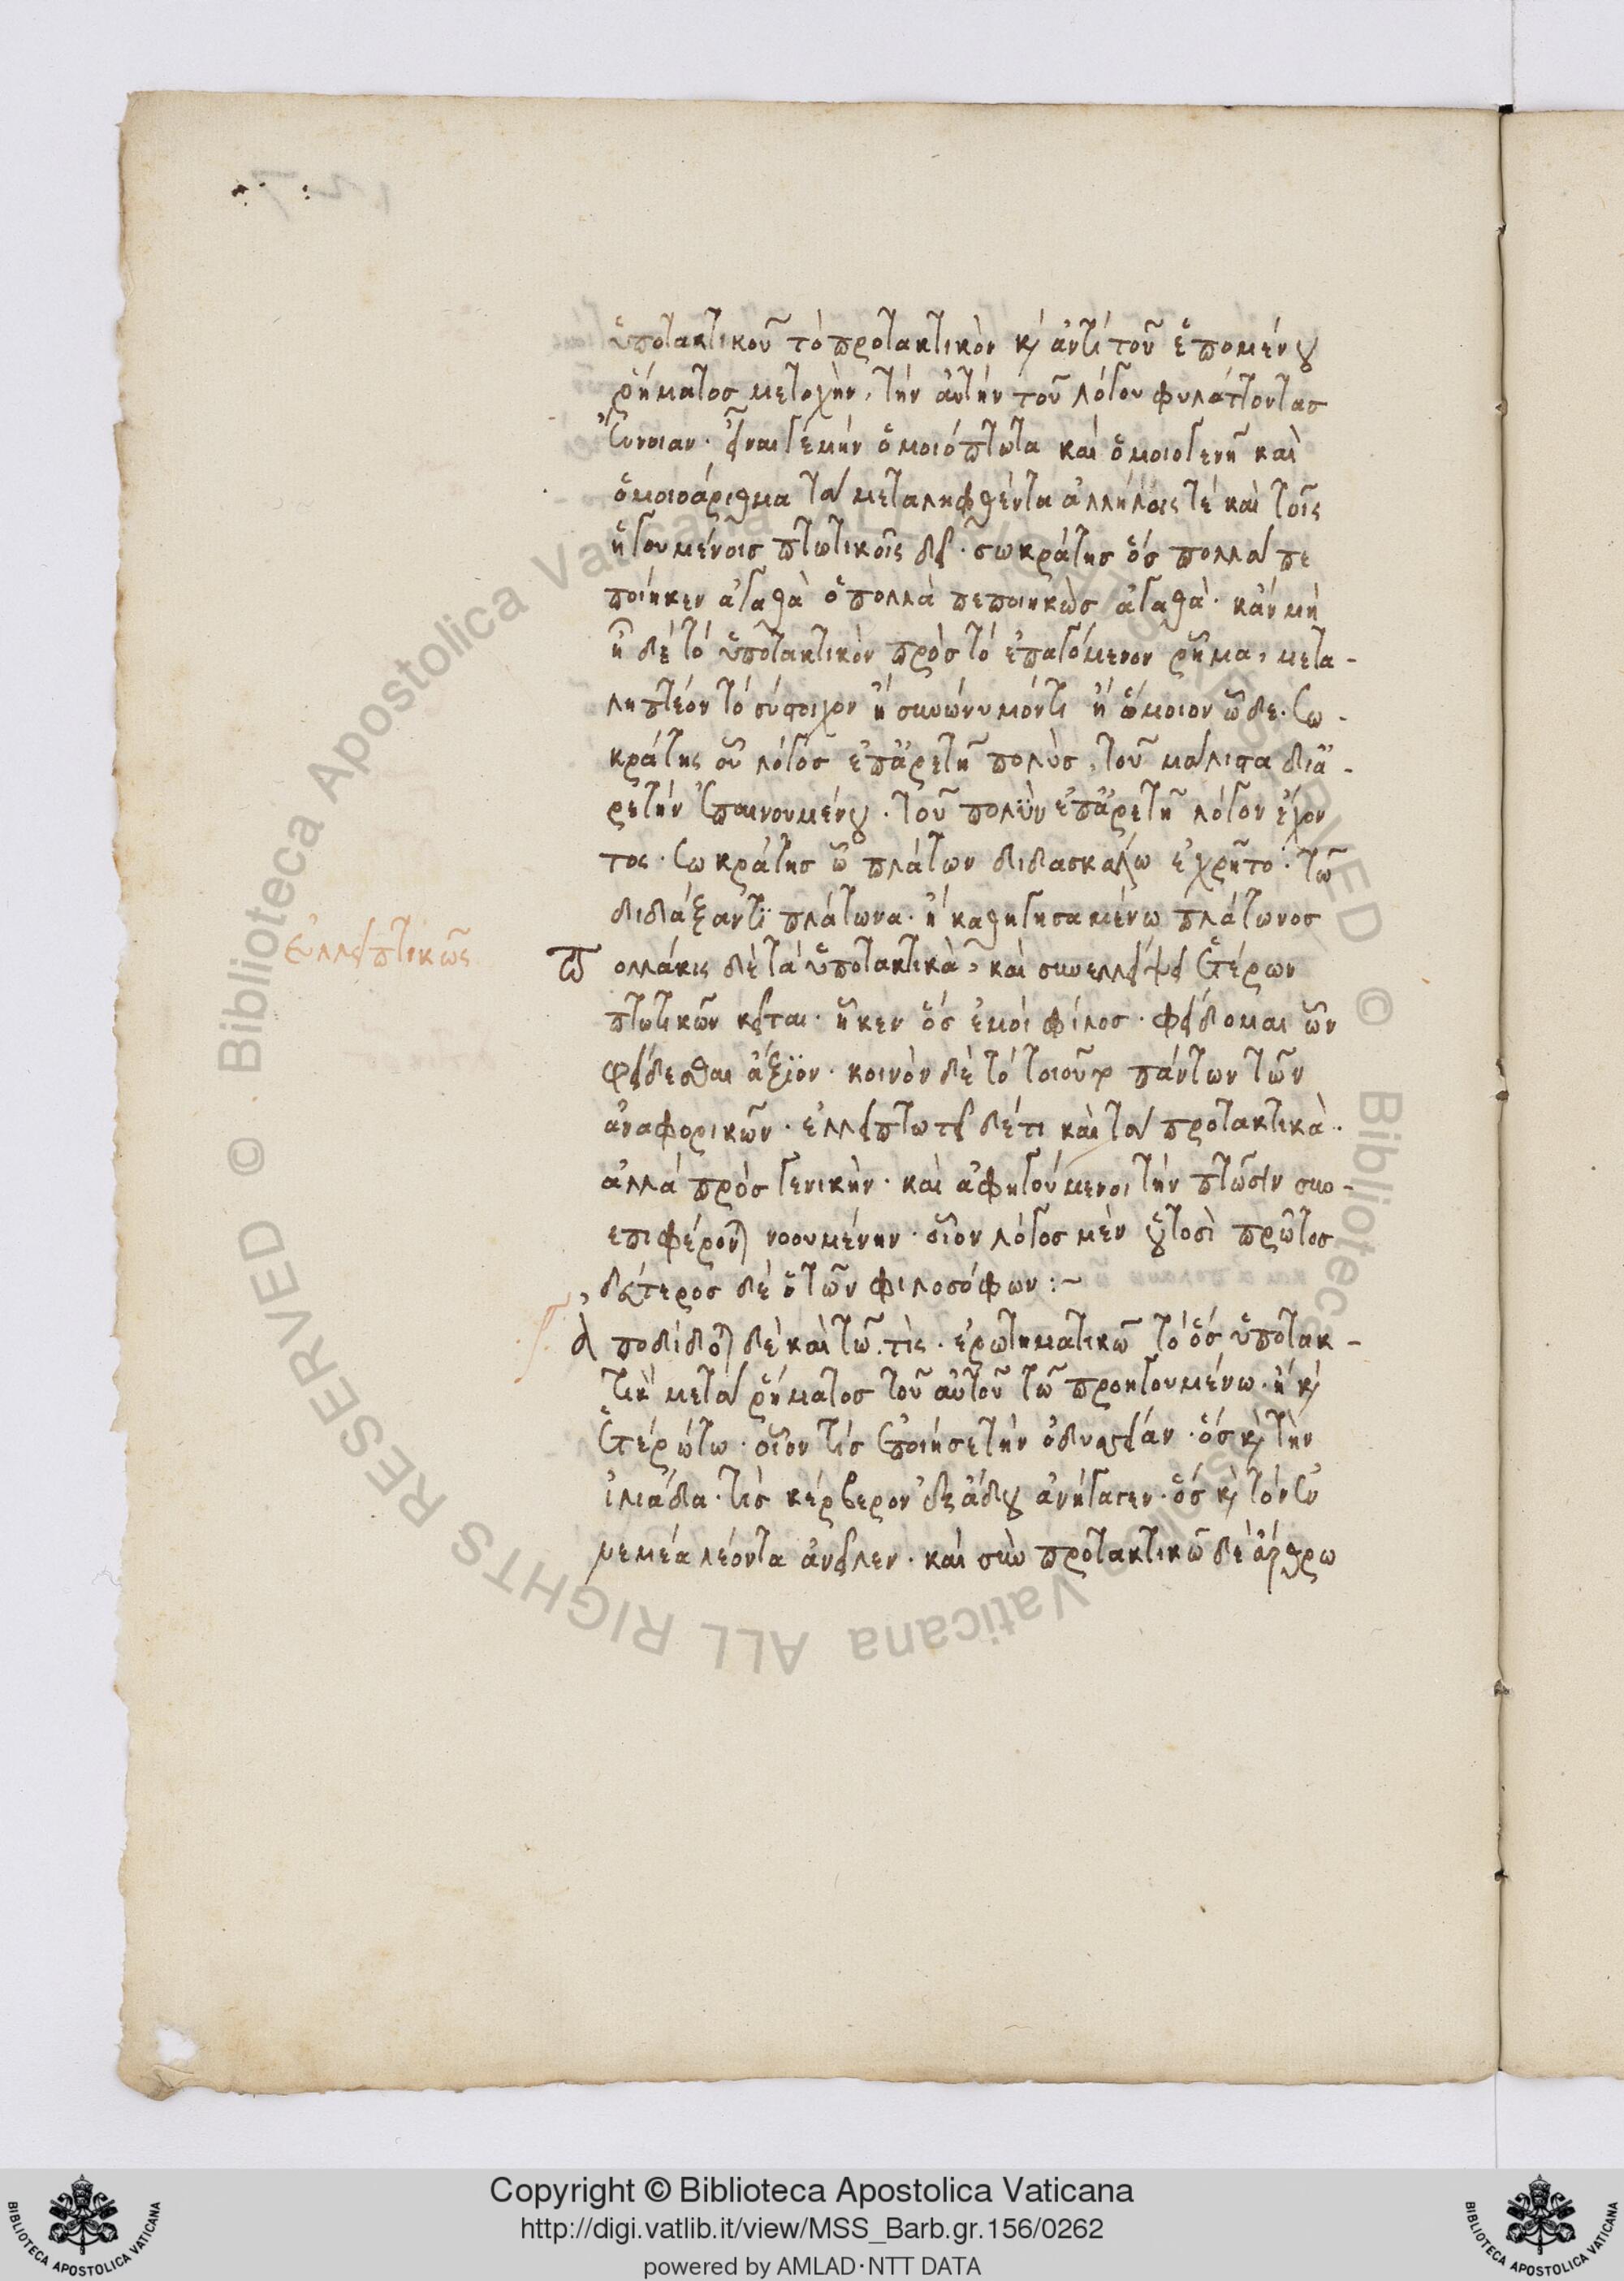 ὑποτακτικοῦ τὸ προτακτικὸν κ ἀντὶ τοῦ ἑπομένου
ῥήματος μετοχὴν, τὴν αὐτὴν τοῦ λόγου φυλάττοντας
ἔννοιαν. εἶναι γε μὴν ὁμοιόπτωτα καὶ ὁμοιογενῆ καὶ
ὁμοιοάριθμα τὰ μεταληφθέντα ἀλλήλοις τὲ καὶ τοῖς
ἡγουμένοις πτωτικοῖς δεῖ. σωκράτης ὅς πολλὰ πε
ποίηκεν ἀγαθὰ ὁ πολλὰ πεποιηκὼς ἀγαθὰ. κἀν μὴ
ῇ δὲ τὸ ὑποτακτικὸν πρὸς τὸ ἐπαγόμενον ῥῆμα, μετα-
ληπτέον τὸ σύστοιχον ἢ συνώνυμόν τι ἢ ὅμοιον ὧδε. Σω-
κράτης οὗ λόγος ἐπ ἀρετῇ πολὺς, τοῦ μάλιστα δι ἀ-
ρετὴν ἐπαινουμένου. τοῦ πολὺν ἐπ ἀρετῇ λόγον ἔχον
τος. Σωκράτης ὧ πλάτων διδασκάλω ἐχρῆτο. τῶ
διδάξαντι πλάτωνα. ἢ καθηγησαμένω πλάτωνος
ἐλλειπτικῶς
Πολλάκις δὲ τὰ ὑποτακτικὰ, καὶ συνελλείψει ἑτέρων
πτωτικῶν κεῖται. ἧκεν ὅς ἐμοὶ φίλος. φείδομαι ὧν
φείδεσθαι ἄξιον. κοινὸν δὲ τὸ τοιοῦτον πάντων τῶν
ἀναφορικῶν. ἐλλείπτωτεῖ δέ τι καὶ τὰ προτακτικὰ.
ἀλλὰ πρὸς γενικὴν. καὶ ἀφηγούμενοι τὴν πτῶσιν συν-
επιφέρονται νοουμένην. οἷον λόγος μὲν οὑτοσὶ πρῶτος
δεύτερος δὲ ὁ τῶν φιλοσόφων:~
Ἀποδίδοται δὲ καὶ τῶ τὶς. ἐρωτηματικῶ τὸ ὅς ὑποτακ-
τικὴ μετὰ ῥήματος τοῦ αὐτοῦ τῶ προηγουμένω. ἢ κ
ἑτέρω τω. οἷον τίς ἐποίησε τὴν ὀδυσσείαν. ὅς κ τὴν
ἰλιάδα. τίς κέρβερον ἐξ ἅδου ἀνήγαγεν. ὅς κ τὸν ἐν
νεμέα λέοντα ἀνεῖλεν. καὶ σὺν προτακτικῶ δὲ ἄρθρω